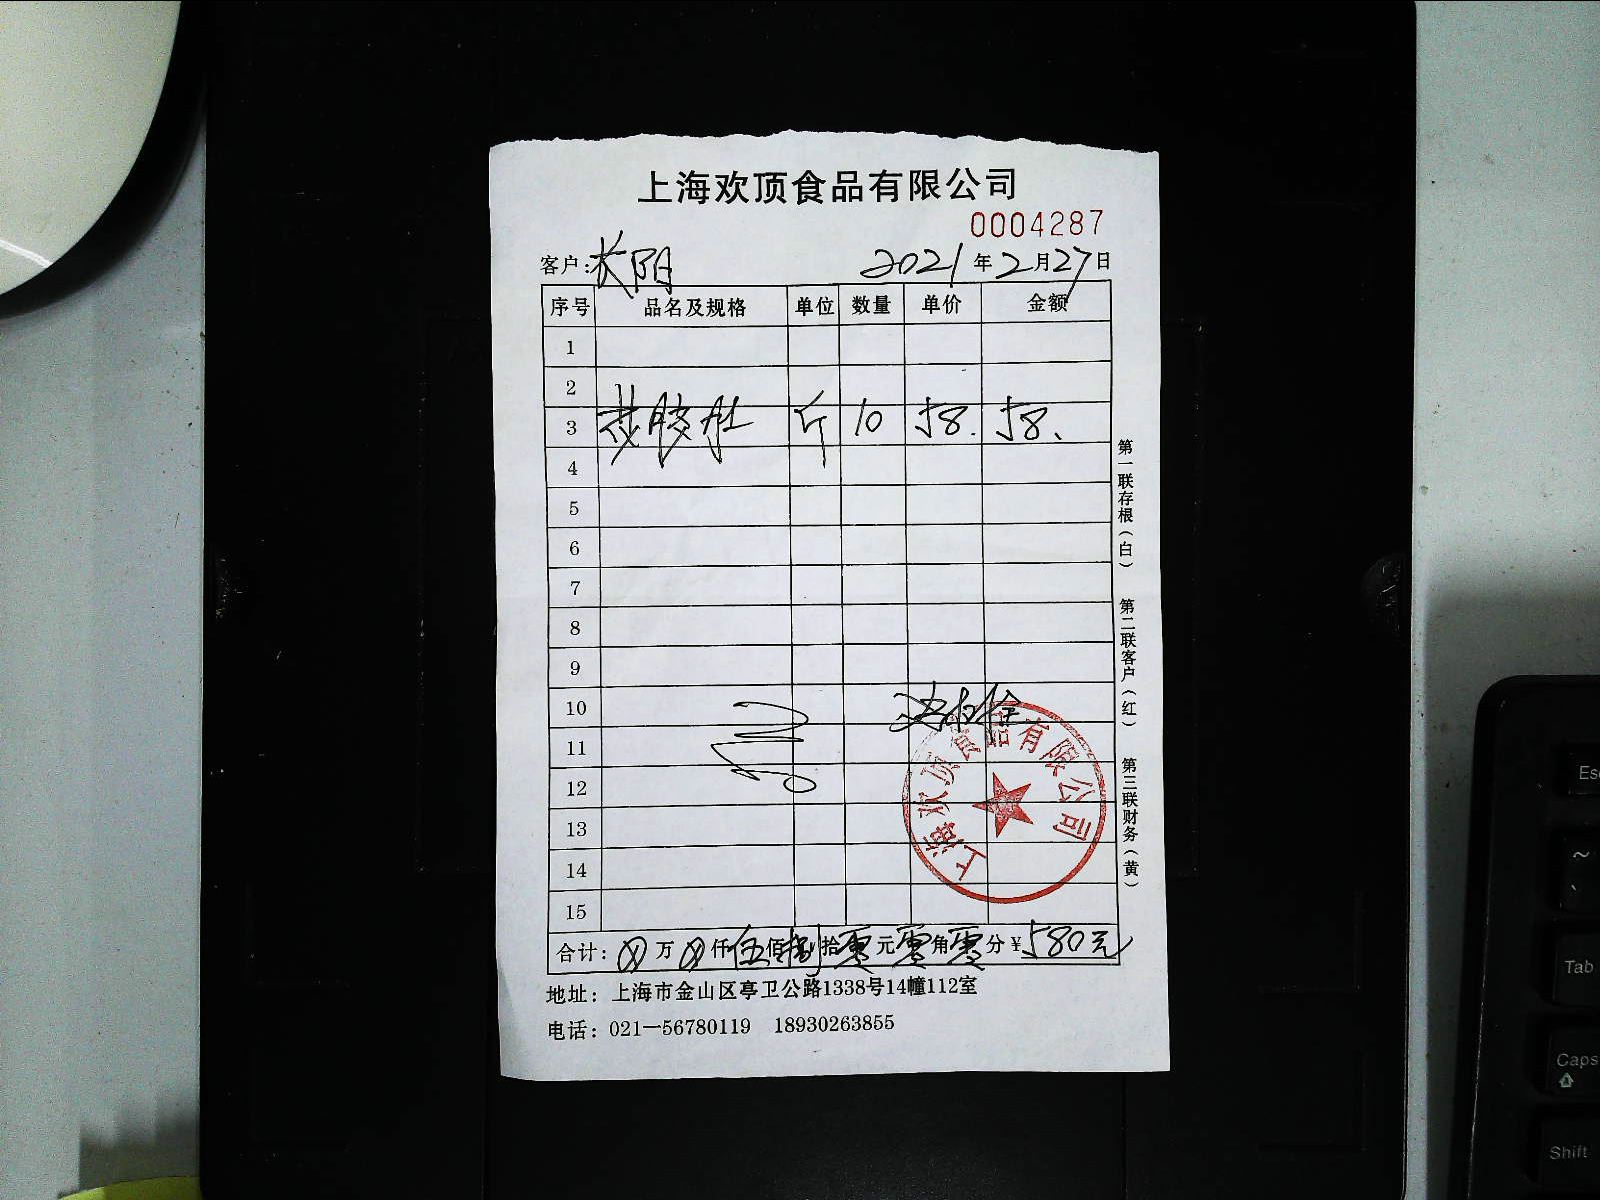 上海欢顶食品有限公司
0004287
客户：长阳 2021年2月27日
序号 品名及规格 单位 数量 单价 金额
1
2
3 花胶肚 斤 10 58. 58.
4
5
6
7
8
9
10
11
12
13
14
15
上海欢顶食品有限公司
合计：⊗万⊗仟伍佰捌拾零元零角零分¥580元
地址：上海市金山区亭卫公路1338号14幢112室
电话：021—56780119 18930263855
第一联存根（白） 第二联客户（红） 第三联财务（黄）
Esc
~
、
Tab
Caps
Shift